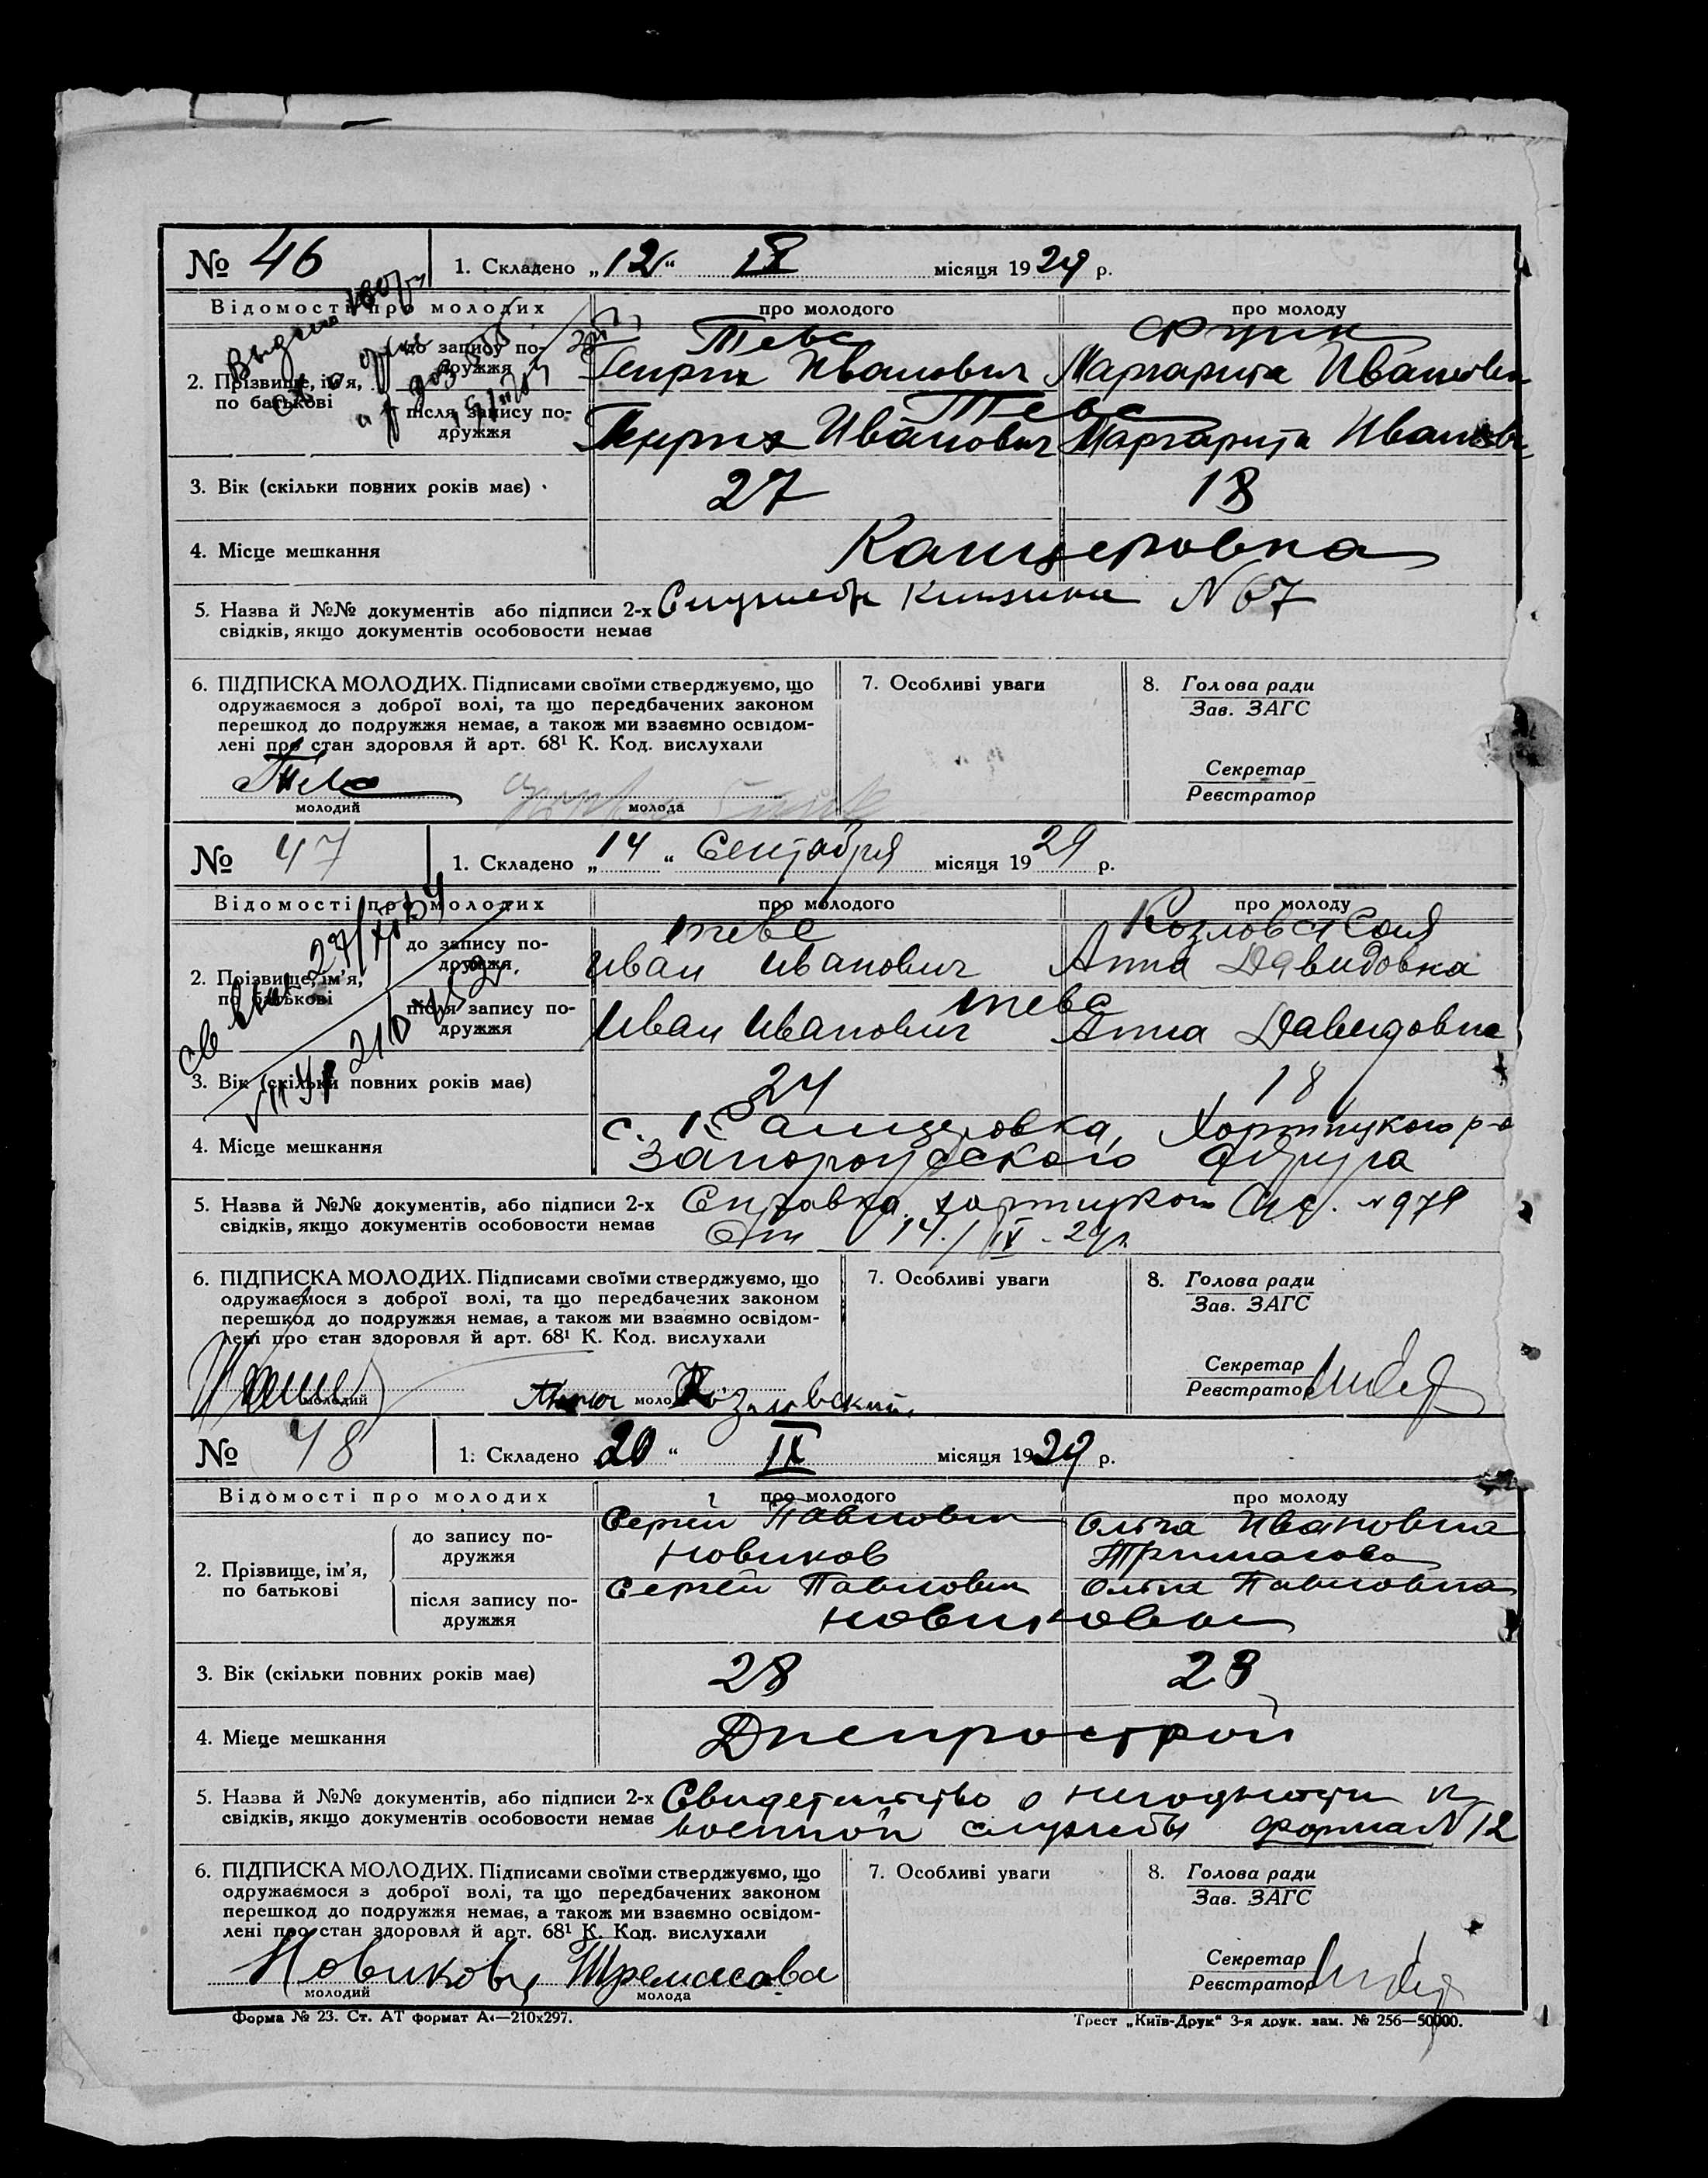 № 46
1. Складено „12“ IX місяця 1929 р.
Відомості про молодих
про молодого
про молоду
2. Прізвище, ім'я, по батькові
до запису подружжя
Тевс
Генрих Иванович
Функ
Маргарита Ивановна
після запису подружжя
Тевс
Генрих Иванович
Маргарита Ивановн
3. Вік (скільки повних років має)
27
18
4. Місце мешкання
Канцеровка
5. Назва й №№ документів або підписи 2-х
свідків, якщо документів особовости немає
N 67
6. ПІДПИСКА МОЛОДИХ. Підписами своїми стверджуємо, що
одружаємося з доброї волі, та що передбачених законом
перешкод до подружжя немає, а також ми взаємно освідом-
лені про стан здоровля й арт. 68¹ К. Код. вислухали
Тевс
молодий
молода
7. Особливі уваги
8. Голова ради
Зав. ЗАГС
Секретар
Реєстратор
№ 47
1. Складено „14“ Сентября місяця 1929 р.
Відомості про молодих
про молодого
про молоду
2. Прізвище, ім'я,
по батькові
до запису по-
дружжя
Тевс
Иван Иванович
Козловская
Анна Давидовна
після запису по-
дружжя
Тевс
Иван Иванович
Анна Давидовна
3. Вік (скільки повних років має)
24
18
4. Місце мешкання
с. Канцеровка, Хортицкого р-а
Запорожского округа
5. Назва й №№ документів, або підписи 2-х
свідків, якщо документів особовости немає
Справка хортицкого N 979
От 14/IV-29г.
6. ПІДПИСКА МОЛОДИХ. Підписами своїми стверджуємо, що
одружаємося з доброї волі, та що передбачених законом
перешкод до подружжя немає, а також ми взаємно освідом-
лені про стан здоровля й арт. 68¹ К. Код. вислухали
молодий
молода
7. Особливі уваги
8. Голова ради
Зав. ЗАГС
Секретар
Реєстратор
№ 48
1. Складено 20“ IX місяця 1929 р.
Відомості про молодих
про молодого
про молоду
2. Прізвище, ім'я,
по батькові
до запису по-
дружжя
Сергей Павлович
Новиков
Ольга Ивановна
після запису по-
дружжя
Сергей Павлович
Ольга Павловна
Новиковы
3. Вік (скільки повних років має)
28
23
4. Місце мешкання
Днепрострой
5. Назва й №№ документів, або підписи 2-х
свідків, якщо документів особовости немає
Свидетельство о негодности к
военной службы форма N 12
6. ПІДПИСКА МОЛОДИХ. Підписами своїми стверджуємо, що
одружаємося з доброї волі, та що передбачених законом
перешкод до подружжя немає, а також ми взаємно освідом-
лені про стан здоровля й арт. 68¹ К. Код. вислухали
Новиков
молодий
молода
7. Особливі уваги
8. Голова ради
Зав. ЗАГС
Секретар
Реєстратор
Форма № 23. Ст. АТ формат А4—210х297.
Трест „Київ-Друк“ 3-я друк. зам. № 256—50000.